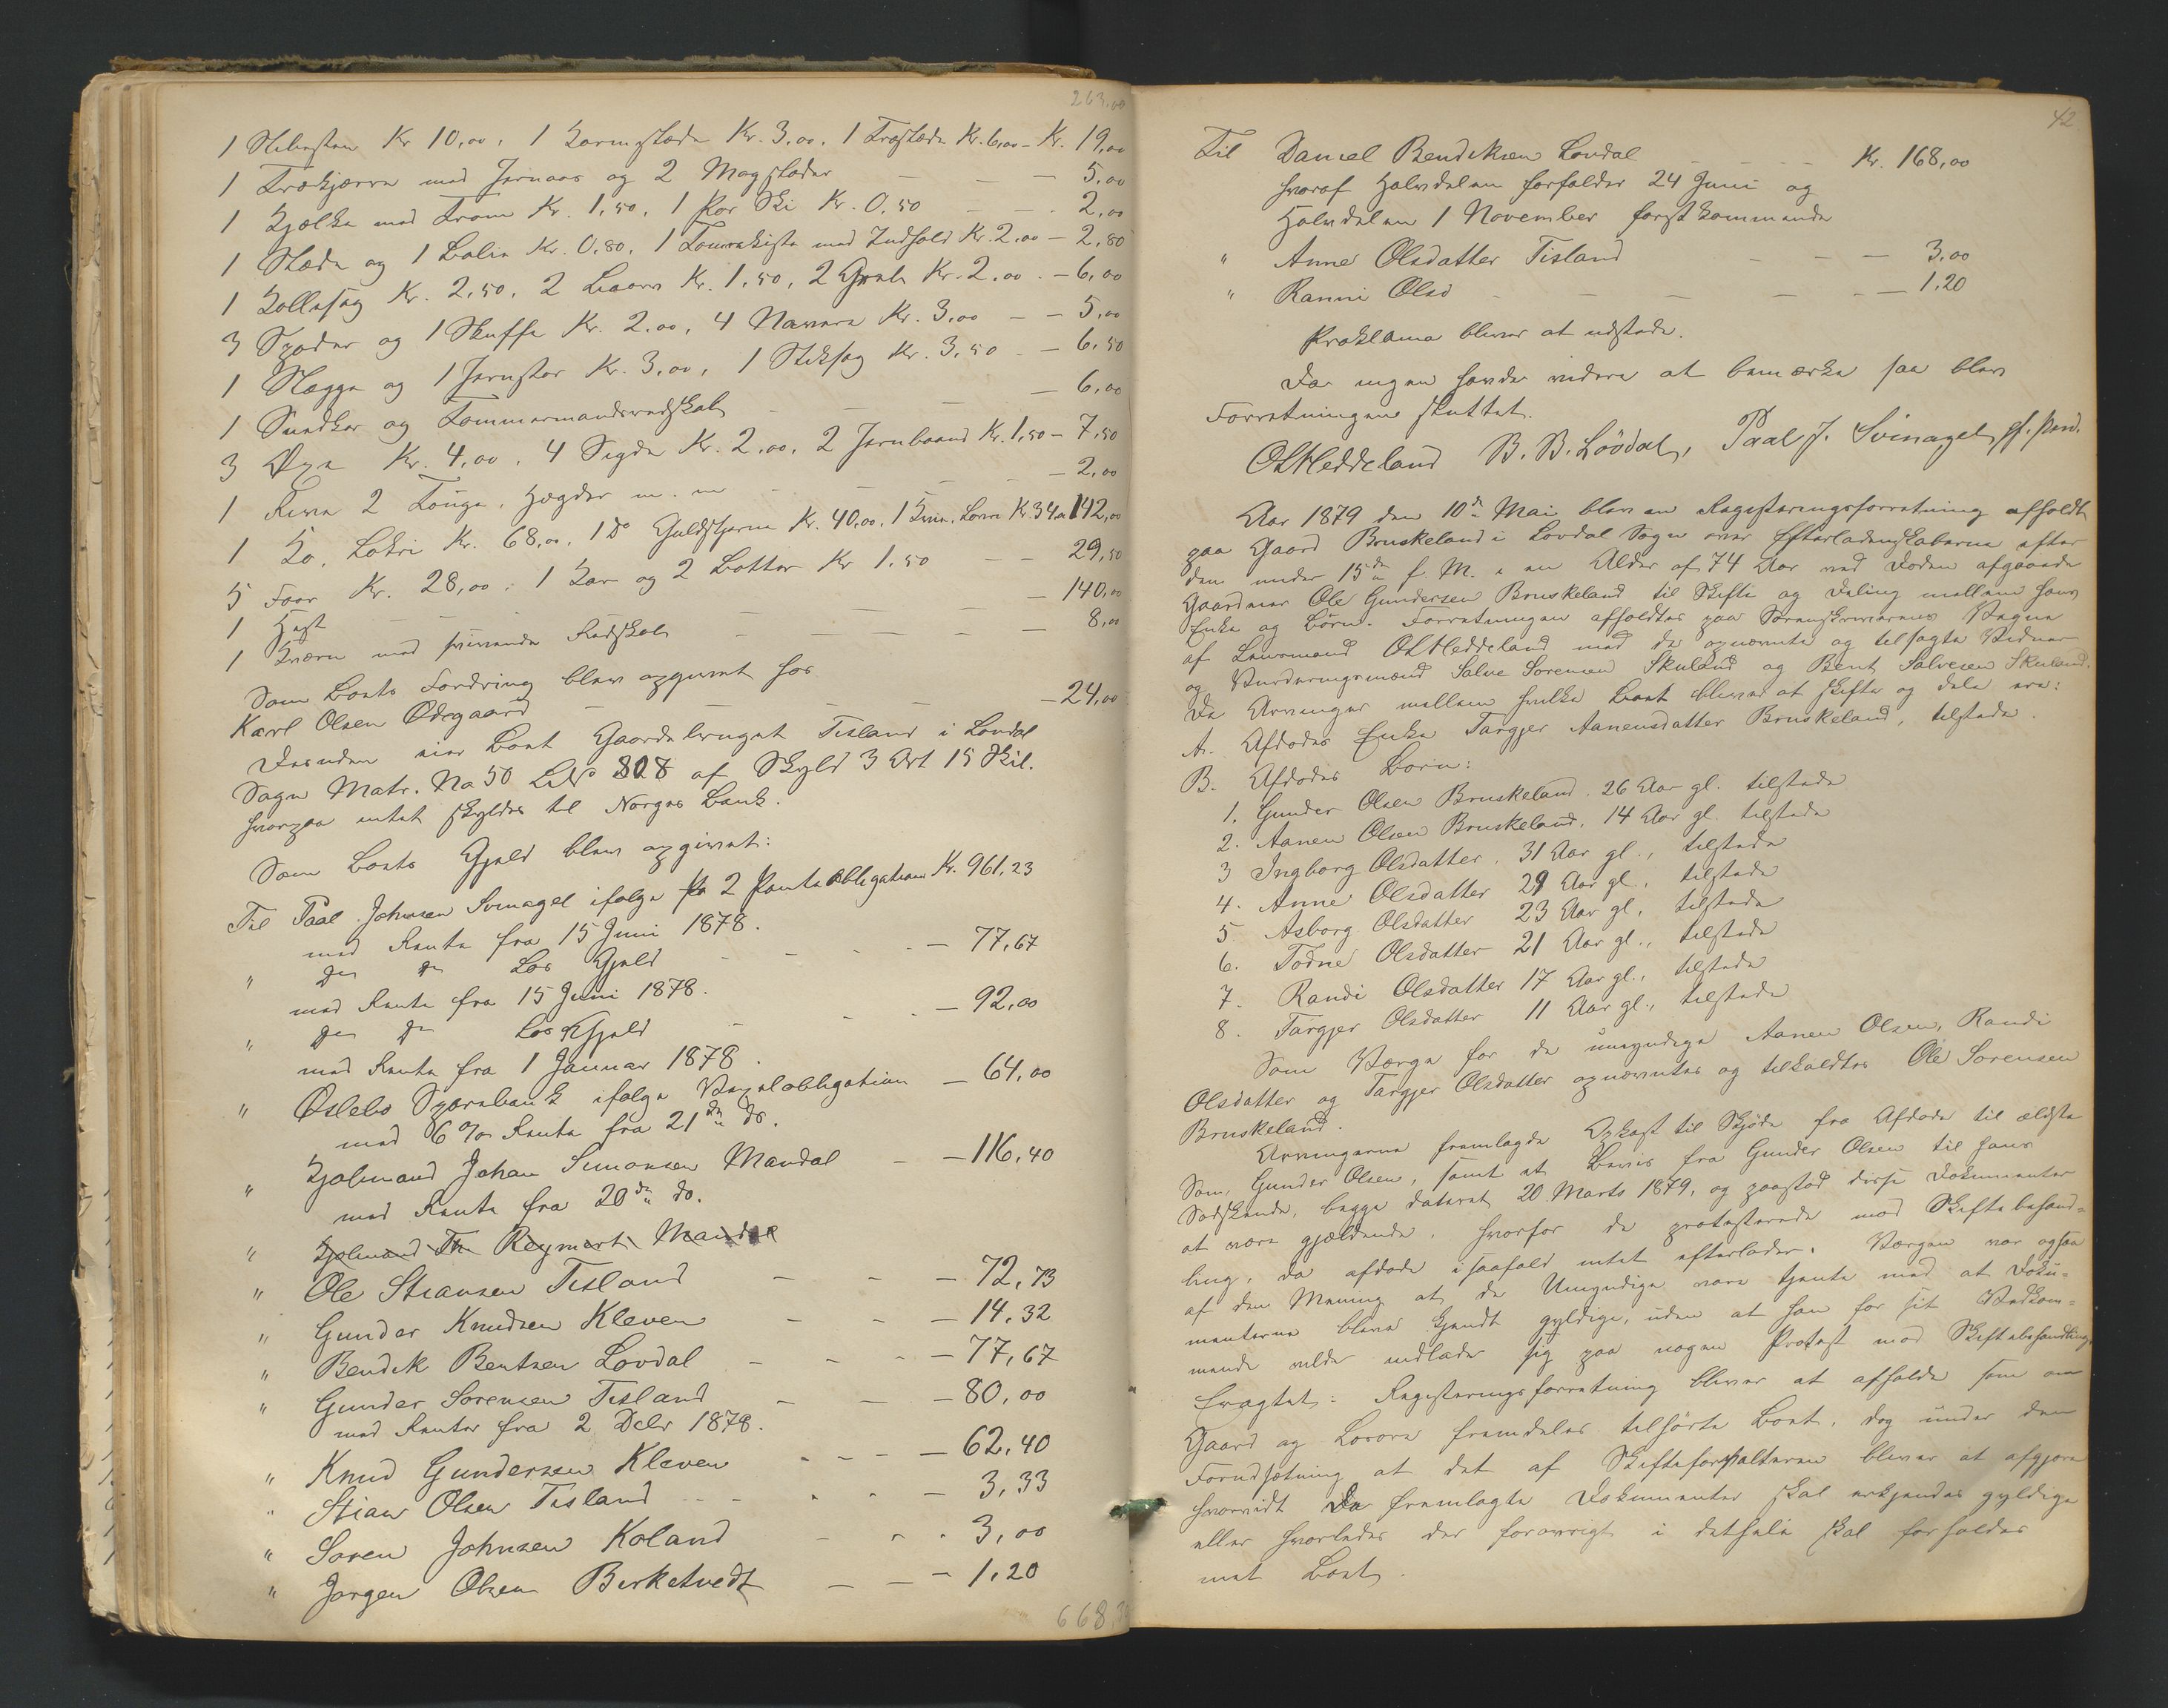 263,00
1 Slibesten Kr 10,00. 1 Kornslæde Kr. 3,00. 1 Træslæde Kr. 6,00 - Kr. 19,00
1 Trækjærre med Jernaas og 2 Mogslæder — — — 5,00
1 Kjælke med Trom Kr. 1,50. 1 Par Ski Kr. 0,50 — — 2,00
1 Slæde og 1 Balie Kr. 0,80. 1 Tomrekiste med Indhold Kr. 2,00 — 2,80
1 Kollesag Kr. 2,50. 2 Kr. 1,50. 2 Kr. 2,00 — 6,00
3 Spader og 1 Skuffe Kr. 2,00, 4 Navare Kr. 3,00 — — 5,00
1 Slægge og 1 Jernstør Kr. 3,00, 1 Stiksag Kr. 3,50 — 6,50
1 og Tømmermandsredskab — — — 6,00
3 Øxe Kr. 4,00. 4 Sigde Kr. 2,00. 2 Jernbaand Kr. 1,50 — 7,50
1 2 Tønge. Hægder m. m — — — 2,00
1 Ko, Kr. 68,00. 1 Do Guldstjerne Kr. 40,00. 1 Kvie, Kr. 34,00 142,00
5 Faar Kr. 28,00. 1 Kar og 2 Bøtter Kr 1.50 — — 29,50
1 Hest — — — 140,00
1 Kværn med Redskab — — — 8,00
Som Boets Fordring blev opgivet hos
Karl Olsen Ødegaard — — — 24,00
Desuden eier Boet Gaardebruget Tisland i Løvdal
Sogn Matr. No 50 LNo 808 af Skyld 3 Ort 15 Skil.
hvorpaa intet skyldes til Norges Bank.
Som Boets Gjæld blev opgivet:
Til Paal Johnsen Svinagel ifølge 2 Panteobligationer Kr. 961,23
med Rente fra 15 Juni 1878.
" Do Do Løs Gjæld — — 77,67
med Rente fra 15 Juni 1878.
" Do Do Løs Gjæld — — 92,00
med Rente fra 1 Januar 1878.
" Øslebø Sparebank ifølge Vexelobligation — 64,00
med 6 % Rente fra 21de ds.
" Kjøbmand Johan Simonsen Mandal — — 116,40
med Rente fra 20de ds.
" Kjøbmand Th Reymert Mandal
" Ole Stiansen Tisland — — — 72,73
" Gunder Knudsen Kleven — — — 14,32
" Bendik Bentsen Løvdal — — — 77,67
" Gunder Sørensen Tisland — — — 80,00
med Renter fra 2 Debr 1878.
" Knud Gundersen Kleven — — 62,40
" Stian Olsen Tisland — — — 3,33
" Søren Johnsen Koland — — 3,00
" Jørgen Olsen Birketvedt — — — 1,20
668
42
Til Daniel Bendiksen Løvdal — — Kr. 168,00
hvoraf Halvdelen forfalder 24 Juni og
Halvdelen 1 November førstkommende
" Anne Olsdatter Tisland — — — 3,00
" Ranni Olsd — — — 1,20
Proklama bliver at udstede.
Da ingen havde videre at bemærke saa blev
Forretningen sluttet.
OLMeddeland B. B. Löödal, Paal J. Svinagel,
Aar 1879 den 10de Mai blev en Registreringsforretning afholdt
paa Gaard Bruskeland i Løvdal Sogn over Efterladenskaberne efter
den under 15de f. M. i en Alder af 74 Aar ved Døden afgaaede
Gaardmand Ole Gundersen Bruskeland til Skifte og Deling mellem hans
Enke og Børn. Forretningen afholdtes paa Sorenskriverens Vegne
af Lensmand OLMeddeland med de opnævnte og tilsagte Vidner
og Vurderingsmænd Salve Sørensen Skuland og Bent Salvesen Skuland.
De Arvinger mellem hvilke Boet bliver at skifte og dele ere:
A. Afdødes Enke Targjer Aanensdatter Bruskeland, tilstede.
B. Afdødes Børn:
1. Gunder Olsen Bruskeland. 26 Aar gl. tilstede
2. Aanen Olsen Bruskeland. 14 Aar gl. tilstede
3 Ingborg Olsdatter. 31 Aar gl., tilstede
4. Anne Olsdatter 29 Aar gl. tilstede
5 Asborg Olsdatter 23 Aar gl, tilstede
6. Todne Olsdatter 21 Aar gl., tilstede
7. Randi Olsdatter 17 Aar gl., tilstede
8. Targjer Olsdatter 11 Aar gl., tilstede
Som Værge for de umyndige Aanen Olsen, Randi
Olsdatter og Targjer Olsdatter opnævntes og tilkaldtes Ole Sørensen
Bruskeland.
Arvingerne fremlagde Udkast til Skjøde fra Afdøde til ældste
Søn, Gunder Olsen, samt et Bevis fra Gunder Olsen til hans
Sødskende, begge dateret 20 Marts 1879, og paastod disse Dokumenter
at være gjældende, hvorfor de protesterede mod Skiftebehand=
ling, da afdøde i saafald intet efterlader. Værgen var ogsaa
af den Mening at de Umyndige vare tjente med at Doku=
menterne bleve kjendt gyldige, uden at han for sit Vedkom=
mende vilde indlade sig paa nogen Protest mod Skiftebehandling.
Eragtet: Registreringsforretning bliver at afholde som om
Gaard og Løsøre fremdeles tilhørte Boet, dog under den
Forudsætning at det af Skifteforvalteren bliver at afgjøre
hvorvidt de fremlagte Dokumenter skal erkjendes gyldige
eller hvorledes der forøvrigt i dethele skal forholdes
met Boet.